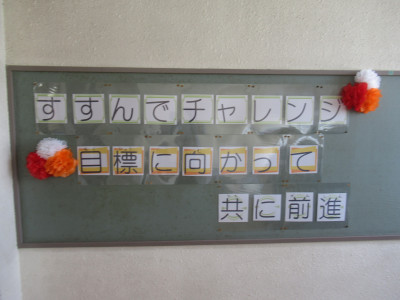 すすんでチャレンジ
目標に向かって
共に前進